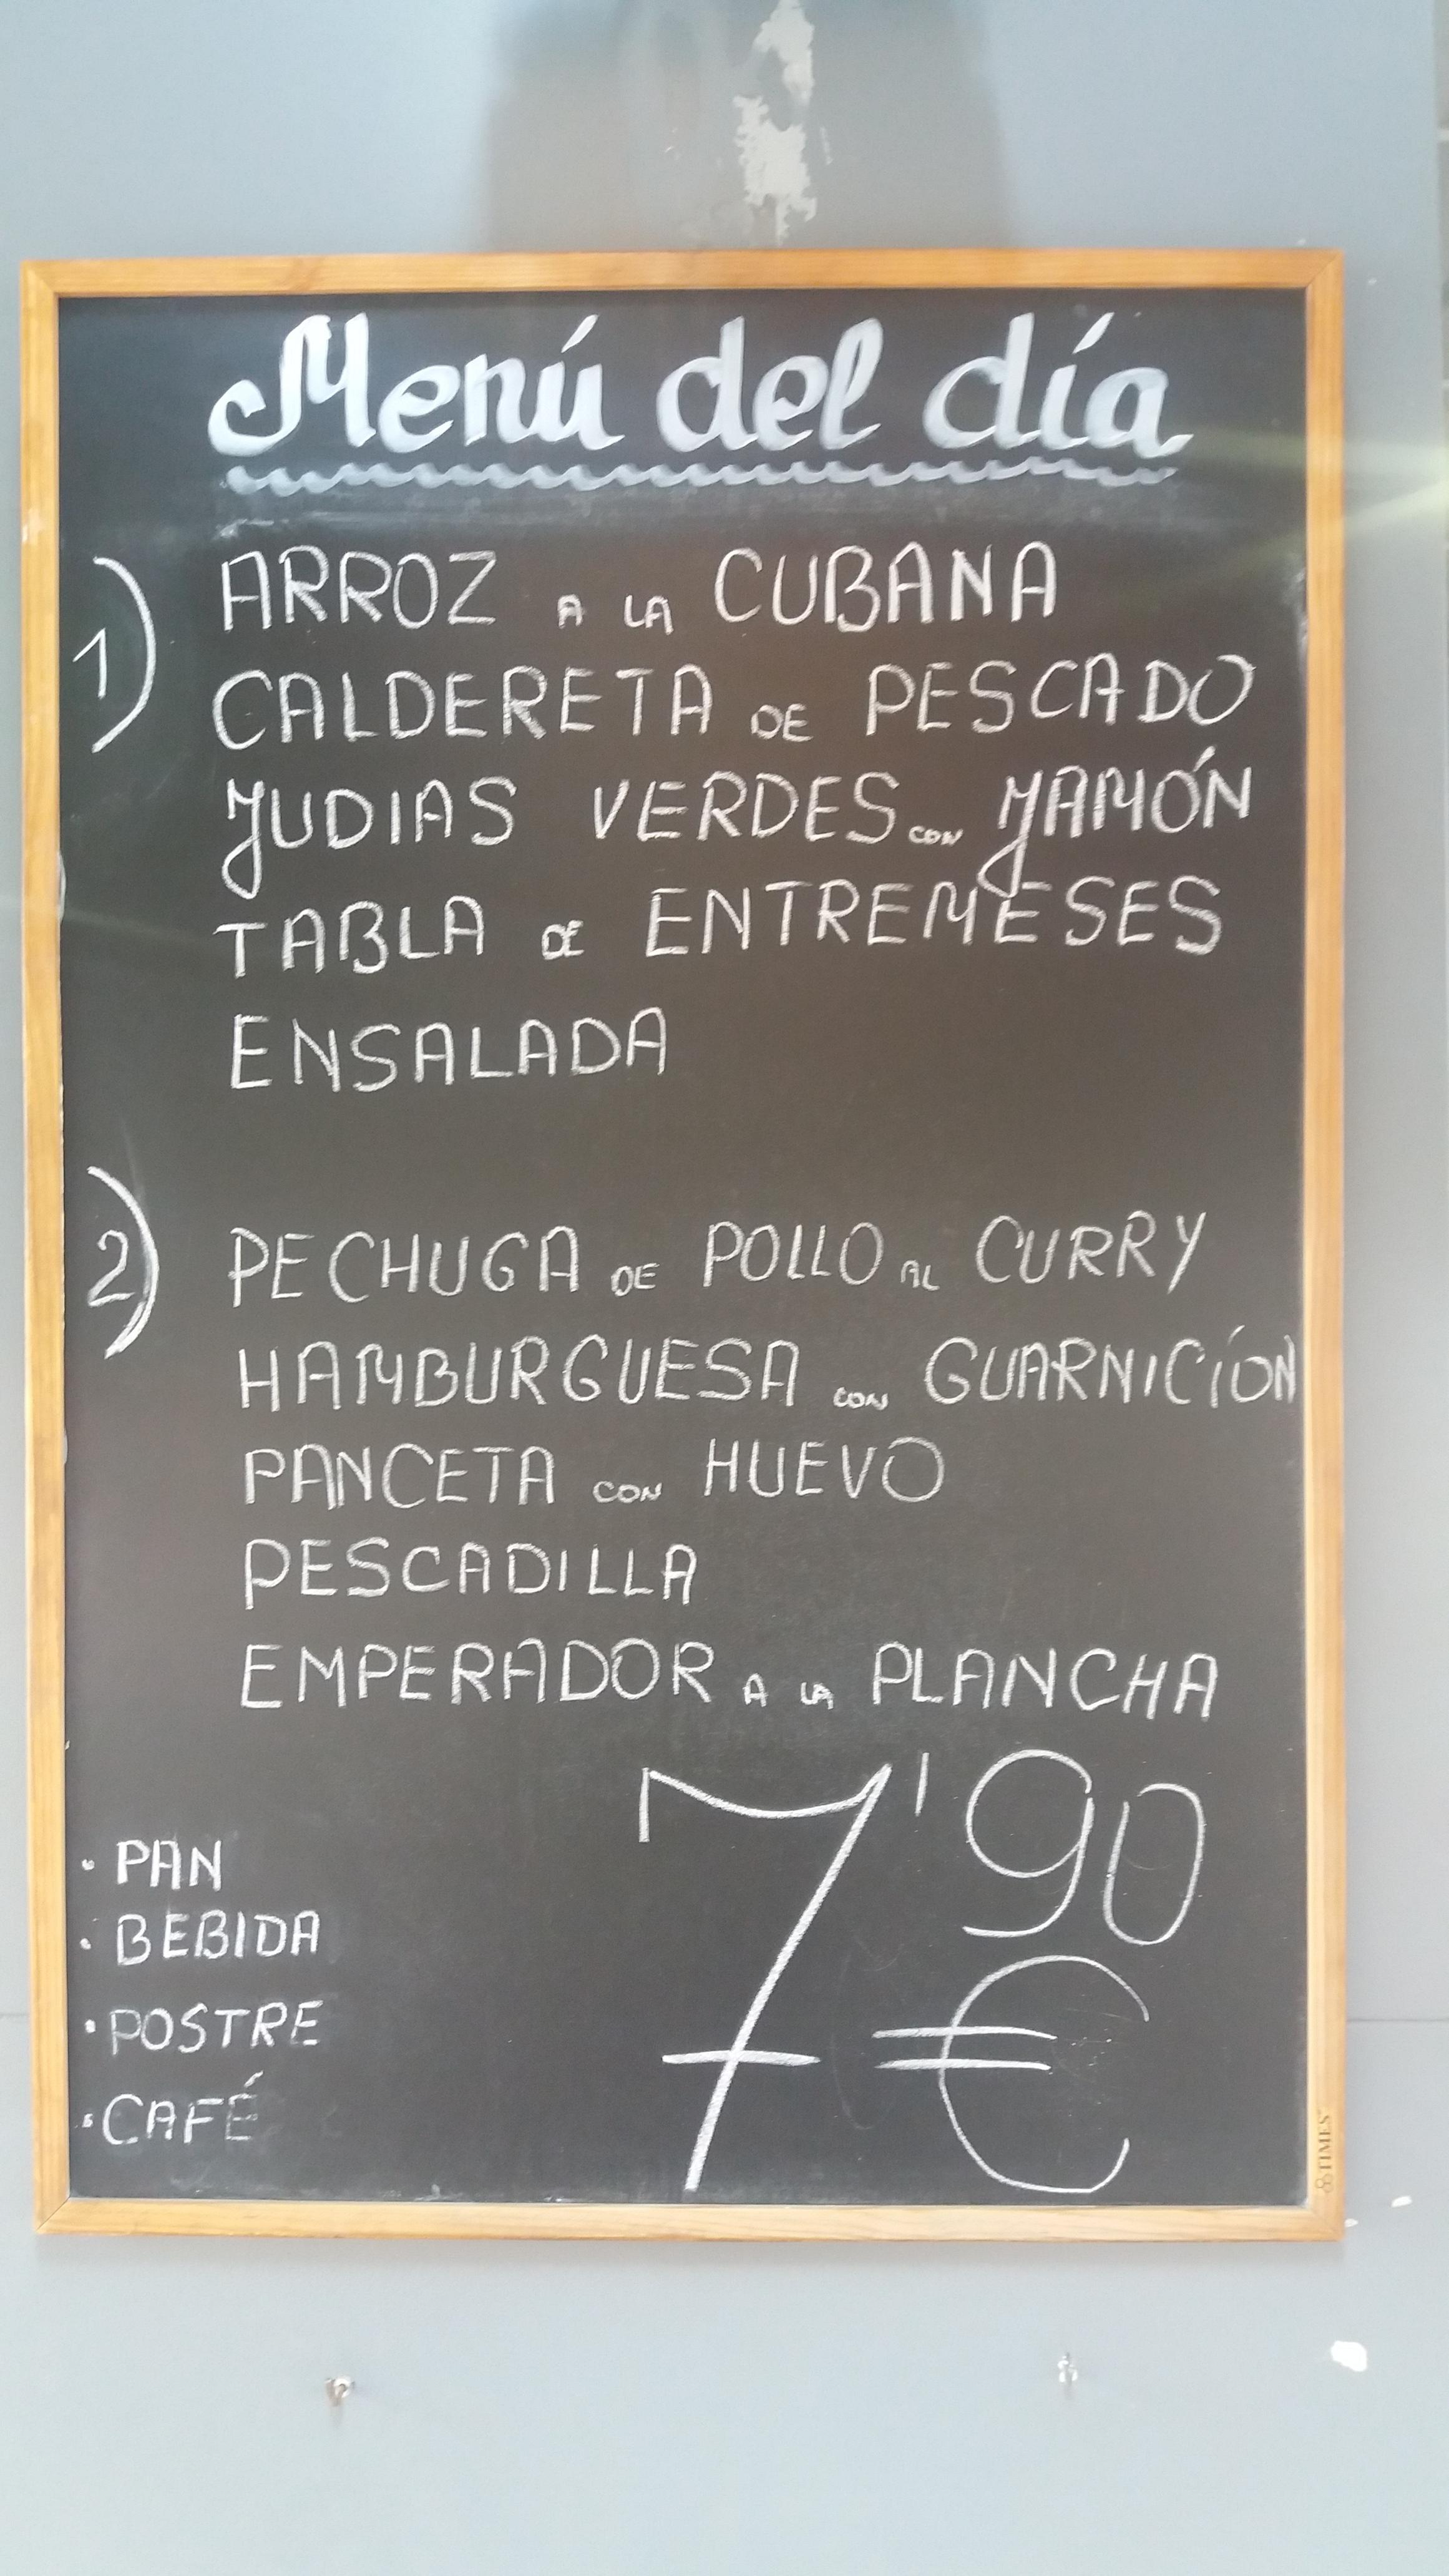 Menú del día
1) ARROZ A LA CUBANA
CALDERETA DE PESCADO
JUDIAS VERDES CON JAMÓN
TABLA DE ENTREMESES
ENSALADA
2) PECHUGA DE POLLO AL CURRY
HAMBURGUESA CON GUARNICÍON
PANCETA CON HUEVO
PESCADILLA
EMPERADOR A LA PLANCHA
7'90 €
· PAN
· BEBIDA
· POSTRE
· CAFÉ
TIMES